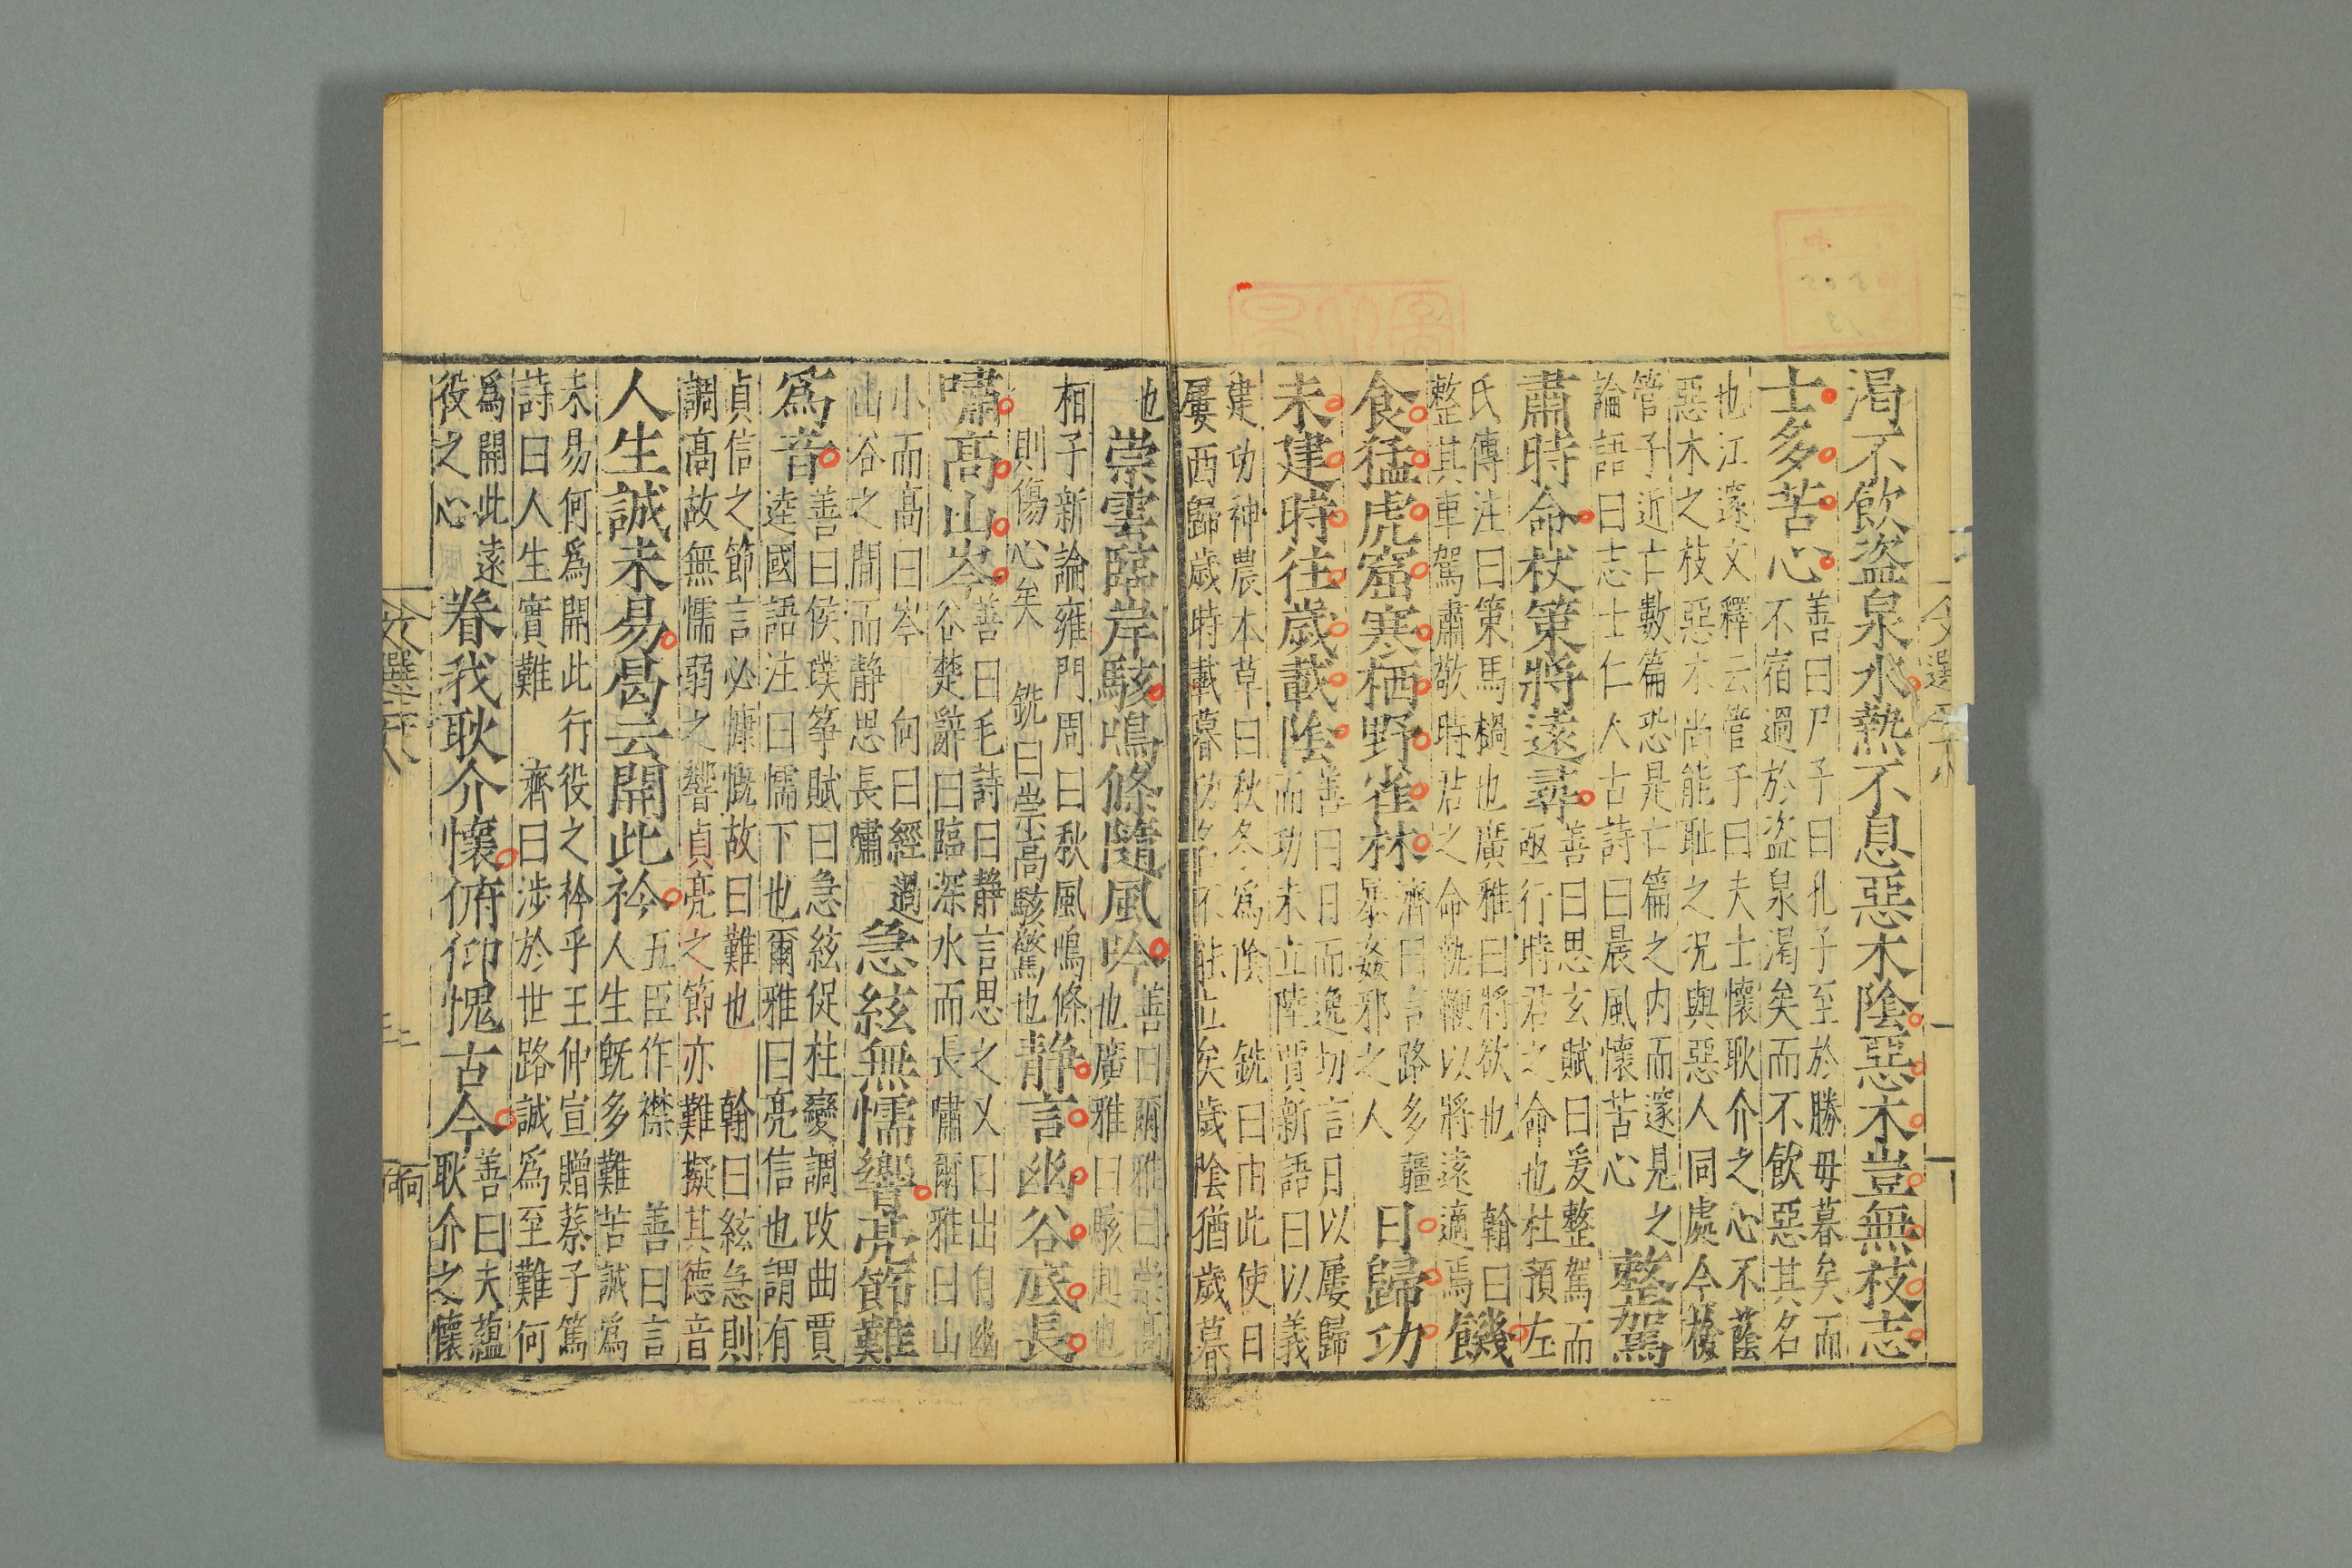 渴不飲盜泉水熱不息惡木陰惡木豈無枝志
士多苦心
善曰尸子曰孔子至於勝母暮矣而
不宿過於盜泉渴矣而不飲惡其名
也江邃文釋云管子曰夫士懷耿介之心不蔭
惡木之枝惡木尚能耻之况與惡人同處今檢
管子近亡數篇恐是亡篇之内而邃見之
論語曰志士仁人古詩曰晨風懷苦心
整駕
肅時命杖策將遠尋
善曰思玄賦曰爰整駕而
亟行時君之命也杜預左
氏傳注曰策馬檛也廣雅曰將欲也
翰曰
整其車駕肅敬時君之命執鞭以將遠適焉
饑
食猛虎窟寒栖野雀林
濟曰言路多彊
暴姦邪之人
日歸功
未建時往歲載陰
善曰日而逸切言日以屢歸
而功未立陸賈新語曰以義
建功神農本草曰秋冬為陰
銑曰由此使日
屢西歸歲時載暮功名不能立矣歲陰猶歲暮
也
崇雲臨岸駭鳴條隨風吟
善曰爾雅曰崇高
也廣雅曰駭起也
相子新論雍門周曰秋風鳴條
則傷心矣
銑曰崇高駭驚也
静言幽谷底長
嘯高山岑
善曰毛詩曰静言思之又曰出自幽
谷楚辭曰臨深水而長嘯爾雅曰山
小而髙曰岑
向曰經過
山谷之間而静思長嘯
急絃無懦響亮節難
爲音
善曰侯璞筝賦曰急絃促柱變調改曲賈
逵國語注曰懦下也爾雅曰亮信也謂有
貞信之節言必慷慨故曰難也
翰曰絃急則
調髙故無懦弱之響貞亮之節亦難擬其德音
人生誠未易曷云開此衿
五臣作襟
善曰言
人生旣多難苦誠爲
未易何爲開此行役之衿乎王仲宣贈蔡子篤
詩曰人生實難
濟曰涉於世路誠爲至難何
爲開此遠
役之心
眷我耿介懷俯仰愧古今
善曰夫蘊
耿介之懷